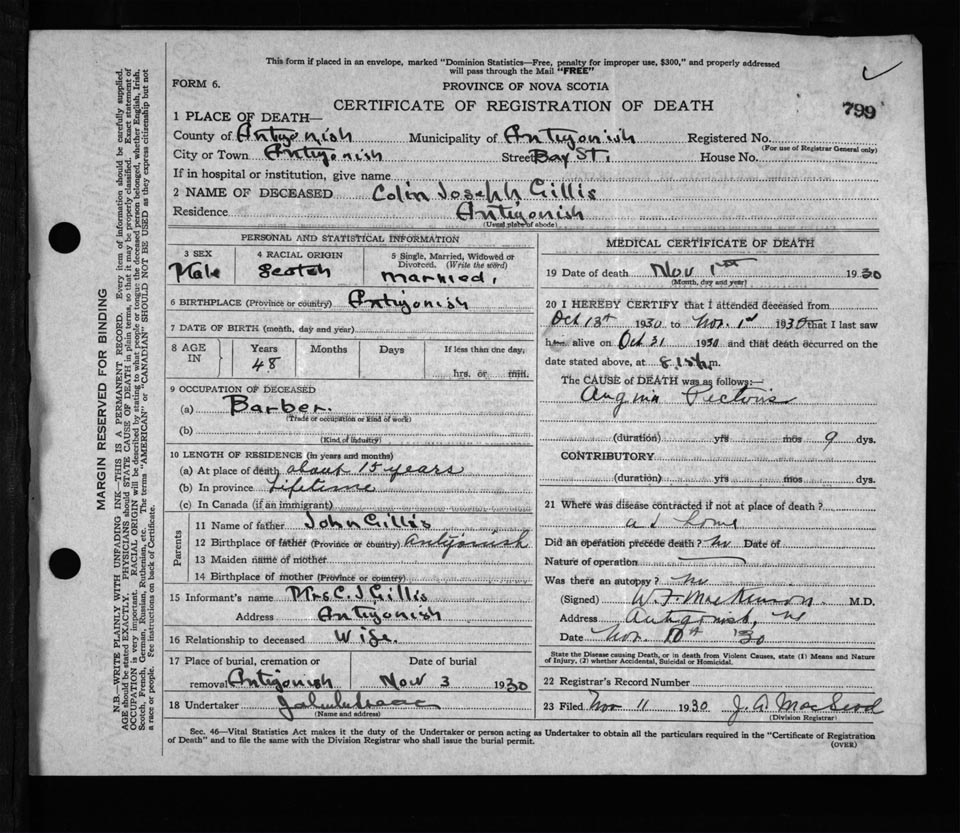 This form if placed in an envelope, marked "Dominion Statistics—Free, penalty for improper use, $300," and properly addressed
will pass through the Mail "FREE"
FORM 6.
PROVINCE OF NOVA SCOTIA
CERTIFICATE OF REGISTRATION OF DEATH
799
1 PLACE OF DEATH—
County of Antigonish Municipality of Antigonish Registered No.
(For use of Registrar General only)
City or Town Antigonish Street Bay St. House No.
If in hospital or institution, give name
2 NAME OF DECEASED Colin Joseph Gillis
Residence Antigonish
(Usual place of abode)
PERSONAL AND STATISTICAL INFORMATION
3 SEX 4 RACIAL ORIGIN 5 Single, Married, Widowed or
Divorced. (Write the word)
Male Scotch Married,
6 BIRTHPLACE (Province or country) Antigonish
7 DATE OF BIRTH (month, day and year)
8 AGE IN Years Months Days If less than one day,
48 hrs. or min.
9 OCCUPATION OF DECEASED
(a) Barber.
(Trade or occupation or kind of work)
(b)
(Kind of industry)
10 LENGTH OF RESIDENCE (in years and months)
(a) At place of death about 15 years
(b) In province Lifetime
(c) In Canada (if an immigrant)
Parents
11 Name of father John Gillis
12 Birthplace of father (Province or country) Antigonish
13 Maiden name of mother
14 Birthplace of mother (Province or country)
15 Informant's name Mrs C. J Gillis
Address Antigonish
16 Relationship to deceased Wife.
17 Place of burial, cremation or Date of burial
removal Antigonish Nov 3 1930
18 Undertaker
(Name and address)
MEDICAL CERTIFICATE OF DEATH
19 Date of death Nov 1st 1930
(Month, day and year)
20 I HEREBY CERTIFY that I attended deceased from
Oct 13th 1930 to Nov. 1st 1930 that I last saw
h alive on Oct 31 1930 and that death occurred on the
date stated above, at 8.15 m.
The CAUSE of DEATH was as follows:—
Angina Pectoris
(duration) yrs mos 9 dys.
CONTRIBUTORY
(duration) yrs mos dys.
21 Where was disease contracted if not at place of death?
at home
Did an operation precede death? no Date of
Nature of operation
Was there an autopsy? no
(Signed) W. F. MacKinnon. M.D.
Address Antigonish, NS
Date Nov. 10th 30
State the Disease causing Death, or in death from Violent Causes, state (1) Means and Nature
of Injury, (2) whether Accidental, Suicidal or Homicidal.
22 Registrar's Record Number
23 Filed Nov 11 1930 J. A. MacLeod
(Division Registrar)
Sec. 46—Vital Statistics Act makes it the duty of the Undertaker or person acting as Undertaker to obtain all the particulars required in the "Certificate of Registration
of Death" and to file the same with the Division Registrar who shall issue the burial permit.
(OVER)
MARGIN RESERVED FOR BINDING
N.B.—WRITE PLAINLY WITH UNFADING INK—THIS IS A PERMANENT RECORD. Every item of information should be carefully supplied.
AGE should be stated EXACTLY. PHYSICIANS should STATE CAUSE OF DEATH in plain terms, so that it may be properly classified. Exact statement of
OCCUPATION is very important. RACIAL ORIGIN will be described by stating to what people or tongue the deceased person belonged, whether English, Irish,
Scotch, French, German, Russian, Ruthenian, etc. The terms "AMERICAN" or "CANADIAN" SHOULD NOT BE USED as they express citizenship but not
a race or people. See instructions on back of Certificate.